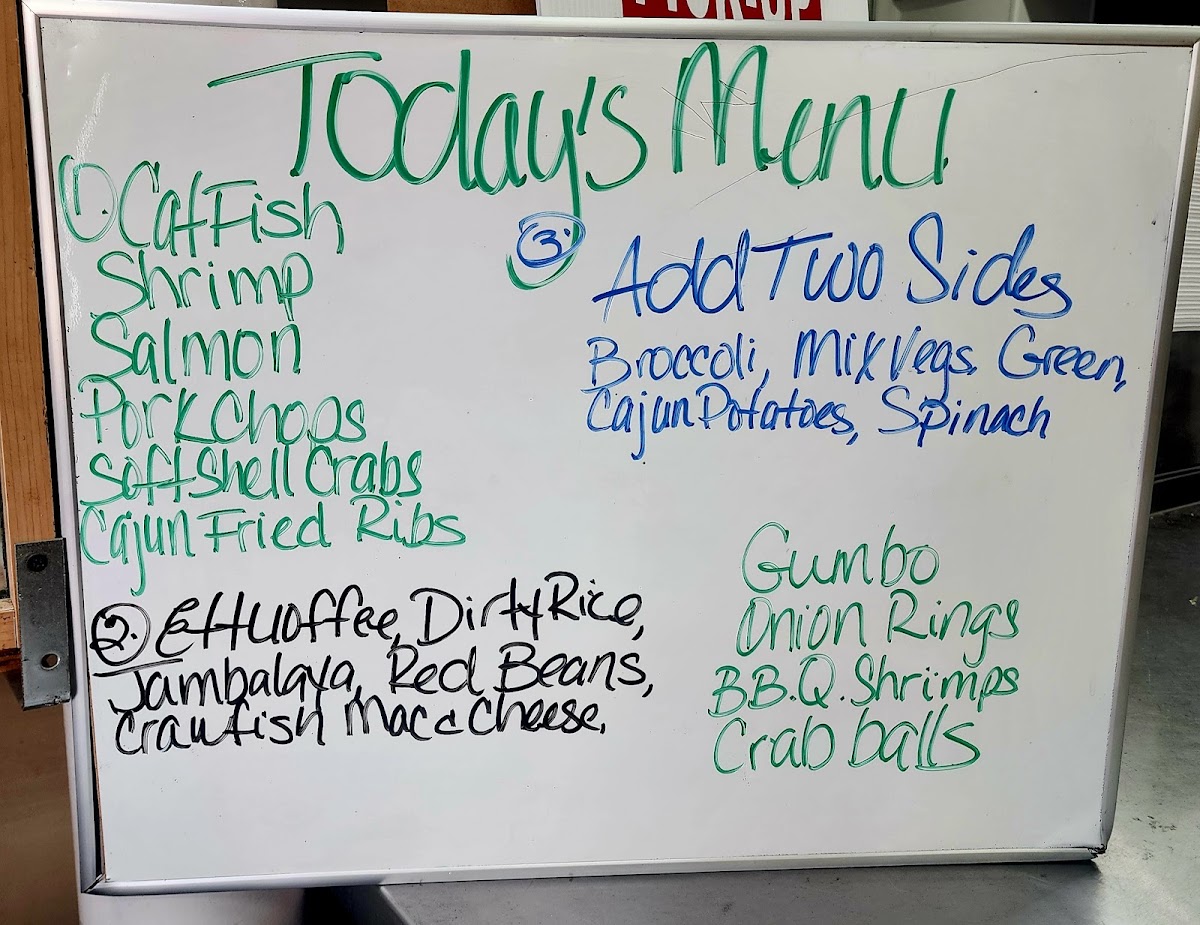 PICK-UP
Today's Menu
1. CatFish
Shrimp
Salmon
Pork Chops
Soft Shell Crabs
Cajun Fried Ribs
2. Ettuoffee, Dirty Rice,
Jambalaya, Red Beans,
Crawfish Mac & Cheese.
3. Add Two Sides
Broccoli, Mix Vegs. Green,
Cajun Potatoes, Spinach
Gumbo
Onion Rings
B.B.Q. Shrimps
Crab balls